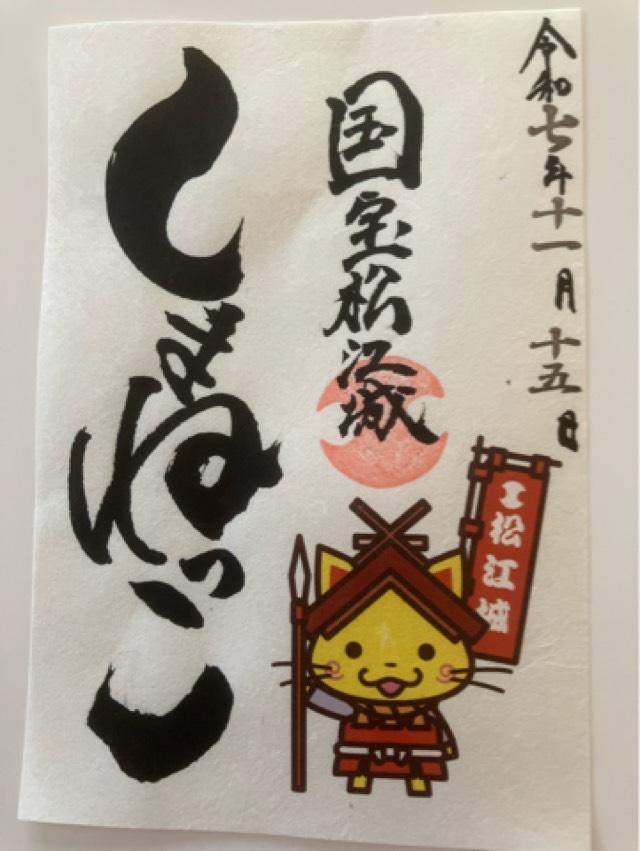 令和七年十一月十五日
国宝松江城
しまねっこ
松江城